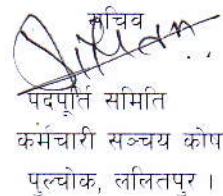 सचिव
पदपूर्ति समिति
कर्मचारी सञ्चय कोष
पुल्चोक, ललितपुर ।